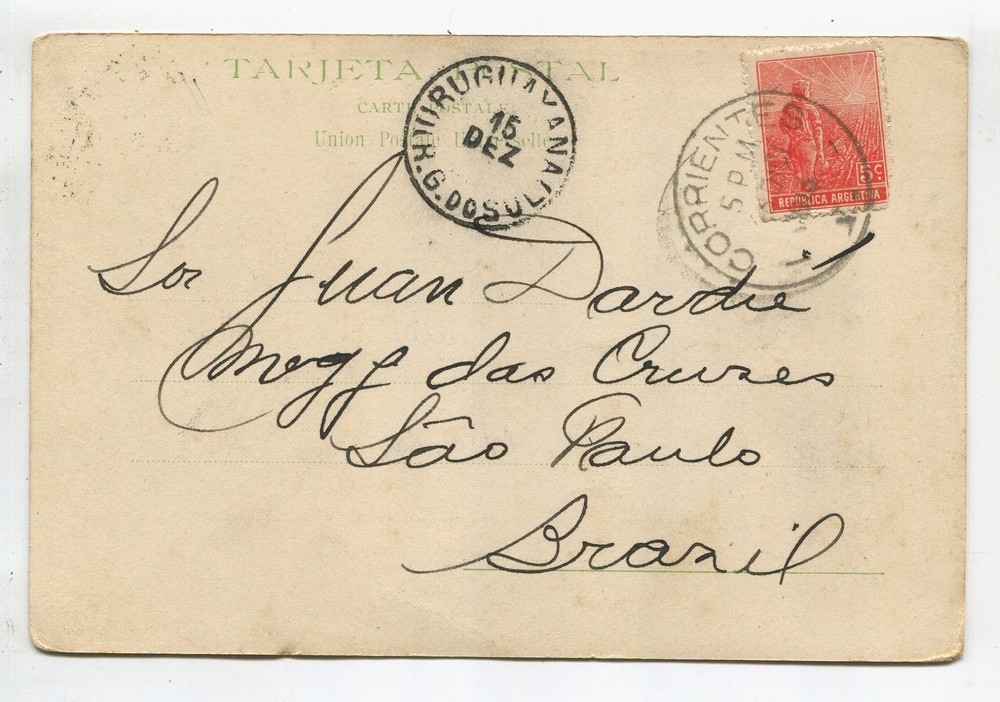 TARJETA POSTAL
CARTE POSTALE
Union Postale Universelle
URUGUAYANA
15
DEZ
R.G. DO SUL
CORRIENTES
5 PM
5c
REPUBLICA ARGENTINA
Sor Juan Dardié
Mogy das Cruzes
São Paulo
Brazil